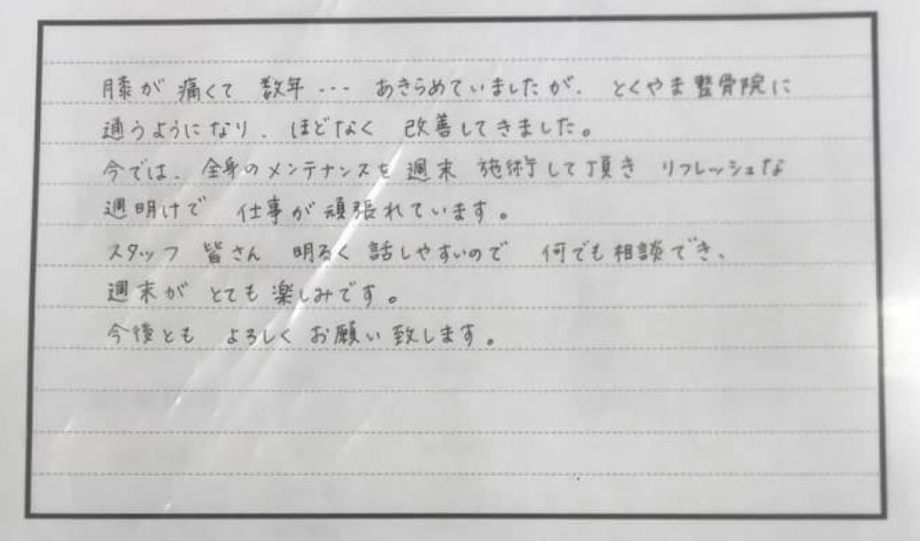 膝が 痛くて 数年‥‥ あきらめていましたが、 とくやま整骨院に
通うようになり、ほどなく 改善してきました。
今では、全身のメンテナンスを 週末 施術して頂き リフレッシュな
週明けで 仕事が頑張れています。
スタッフ 皆さん 明るく 話しやすいので 何でも相談でき、
週末が とても楽しみです。
今後とも よろしく お願い致します。